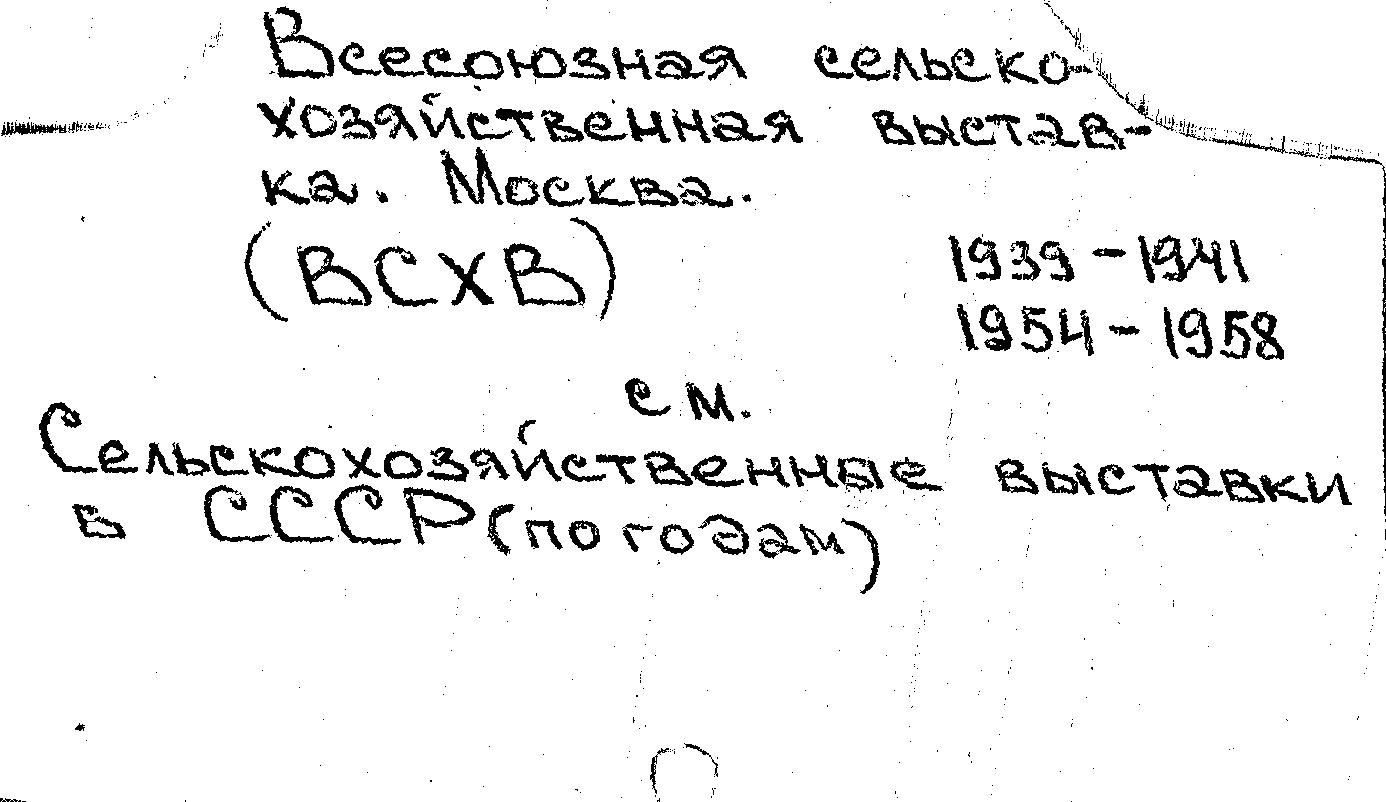 Всесоюзная сельско-
хозяйственная выстав-
ка. Москва.
(ВСХВ)
1939-1941
1954-1958
см.
Сельскохозяйственные выставки
в СССР (по годам)